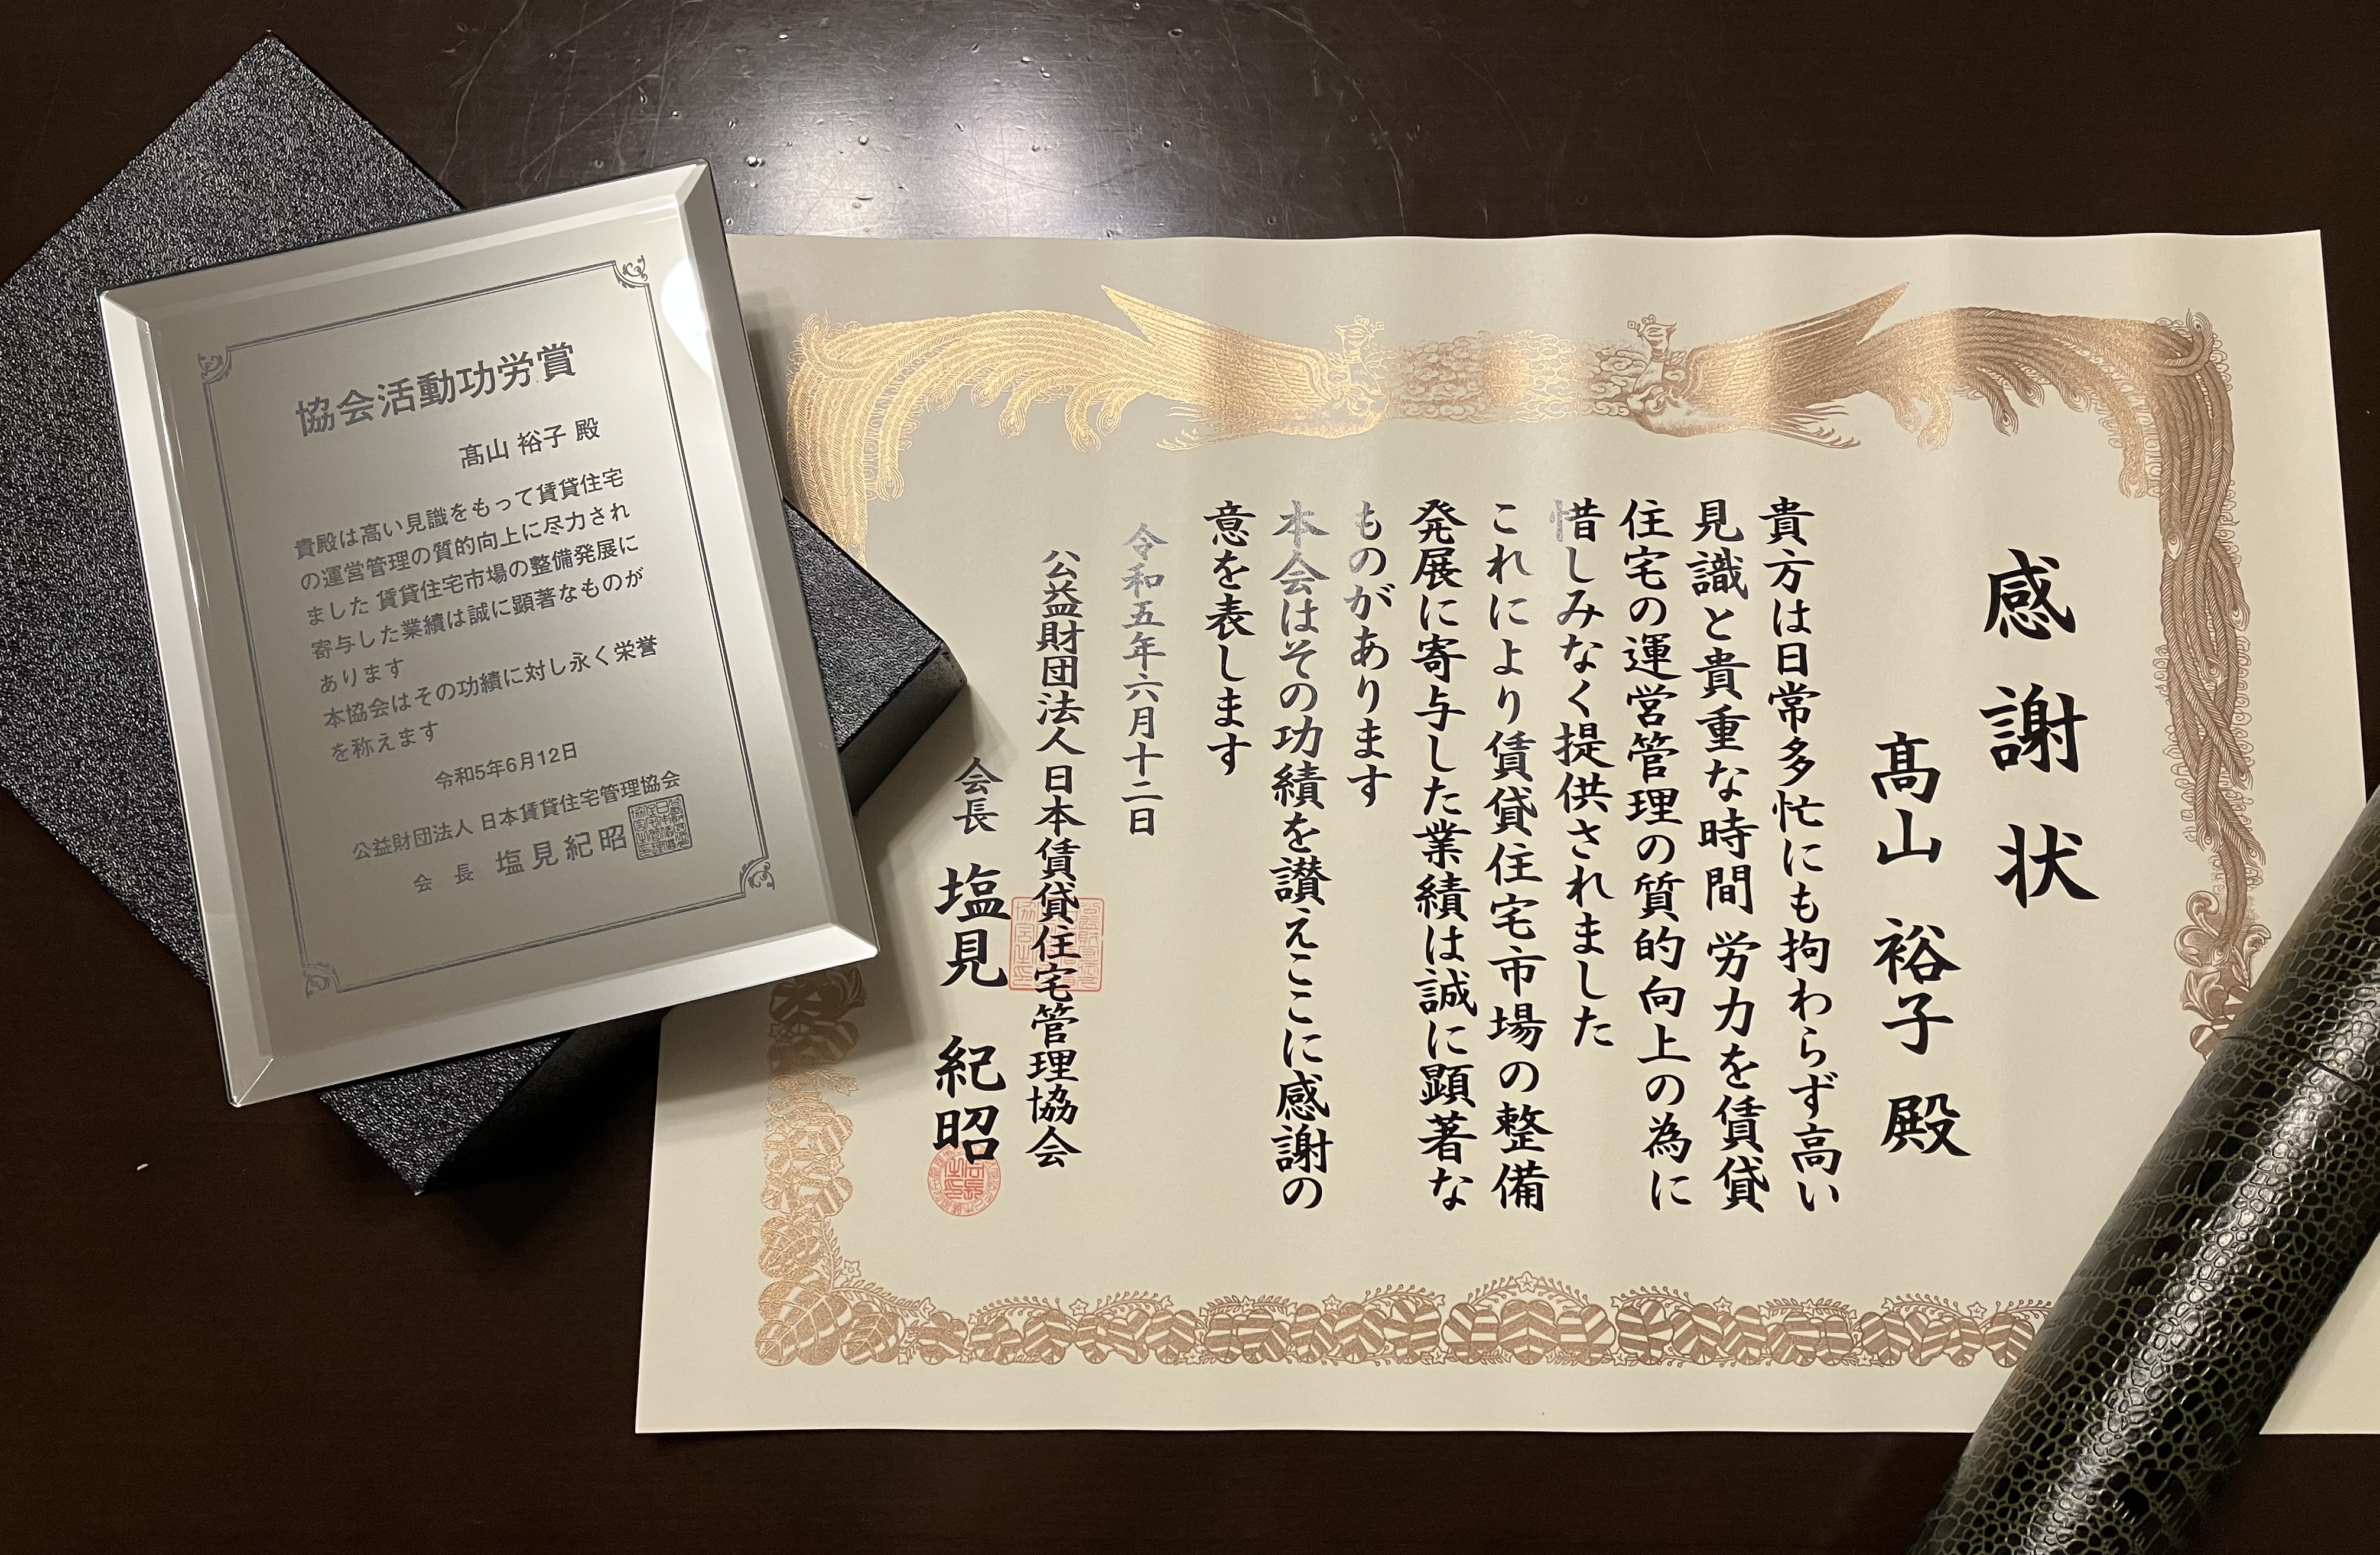 協会活動功労賞
髙山 裕子 殿
貴殿は高い見識をもって賃貸住宅
の運営管理の質的向上に尽力され
ました 賃貸住宅市場の整備発展に
寄与した業績は誠に顕著なものが
あります
本協会はその功績に対し永く栄誉
を称えます
令和5年6月12日
公益財団法人 日本賃貸住宅管理協会
会 長 塩見紀昭
感謝状
髙山 裕子 殿
貴方は日常多忙にも拘わらず高い
見識と貴重な時間 労力を賃貸
住宅の運営管理の質的向上の為に
惜しみなく提供されました
これにより賃貸住宅市場の整備
発展に寄与した業績は誠に顕著な
ものがあります
本会はその功績を讃えここに感謝の
意を表します
令和五年六月十二日
公益財団法人 日本賃貸住宅管理協会
会長 塩見 紀昭